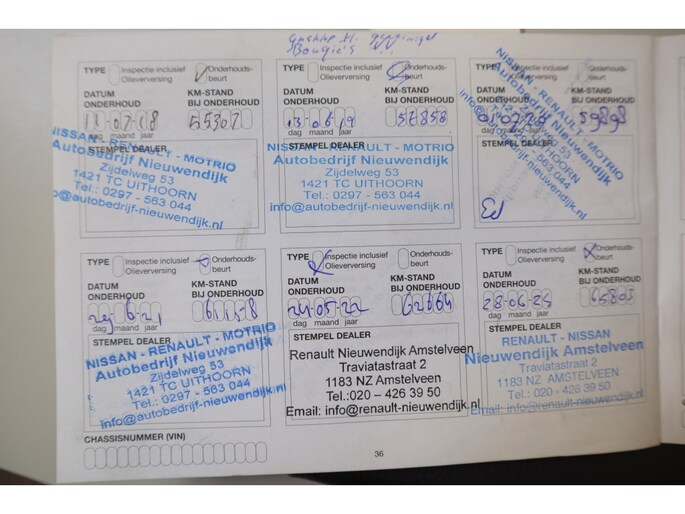 Bougie's
TYPE Inspectie inclusief Olieverversing Onderhoudsbeurt
DATUM ONDERHOUD KM-STAND BIJ ONDERHOUD
07-18 55307
dag maand jaar
STEMPEL DEALER
NISSAN - RENAULT - MOTRIO
Autobedrijf Nieuwendijk
Zijdelweg 53
1421 TC UITHOORN
Tel.: 0297 - 563 044
info@autobedrijf-nieuwendijk.nl
TYPE Inspectie inclusief Olieverversing Onderhoudsbeurt
DATUM ONDERHOUD KM-STAND BIJ ONDERHOUD
13-06-19 57858
dag maand jaar
STEMPEL DEALER
NISSAN - RENAULT - MOTRIO
Autobedrijf Nieuwendijk
Zijdelweg 53
1421 TC UITHOORN
Tel.: 0297 - 563 044
info@autobedrijf-nieuwendijk.nl
TYPE Inspectie inclusief Olieverversing Onderhoudsbeurt
DATUM ONDERHOUD KM-STAND BIJ ONDERHOUD
59898
dag maand jaar
STEMPEL DEALER
NISSAN - RENAULT - MOTRIO
Autobedrijf Nieuwendijk
Zijdelweg 53
1421 TC UITHOORN
Tel.: 0297 - 563 044
info@autobedrijf-nieuwendijk.nl
TYPE Inspectie inclusief Olieverversing Onderhoudsbeurt
DATUM ONDERHOUD KM-STAND BIJ ONDERHOUD
dag maand jaar
STEMPEL DEALER
NISSAN - RENAULT - MOTRIO
Autobedrijf Nieuwendijk
Zijdelweg 53
1421 TC UITHOORN
Tel.: 0297 - 563 044
info@autobedrijf-nieuwendijk.nl
TYPE Inspectie inclusief Olieverversing Onderhoudsbeurt
DATUM ONDERHOUD KM-STAND BIJ ONDERHOUD
24-05-22 62664
dag maand jaar
STEMPEL DEALER
Renault Nieuwendijk Amstelveen
Traviatastraat 2
1183 NZ Amstelveen
Tel.:020 – 426 39 50
Email: info@renault-nieuwendijk.nl
TYPE Inspectie inclusief Olieverversing Onderhoudsbeurt
DATUM ONDERHOUD KM-STAND BIJ ONDERHOUD
65803
dag maand jaar
STEMPEL DEALER
RENAULT - NISSAN
Nieuwendijk Amstelveen
Traviatastraat 2
1183 NZ AMSTELVEEN
Tel.: 020 - 426 39 50
Email: info@renault-nieuwendijk.nl
CHASSISNUMMER (VIN)
36